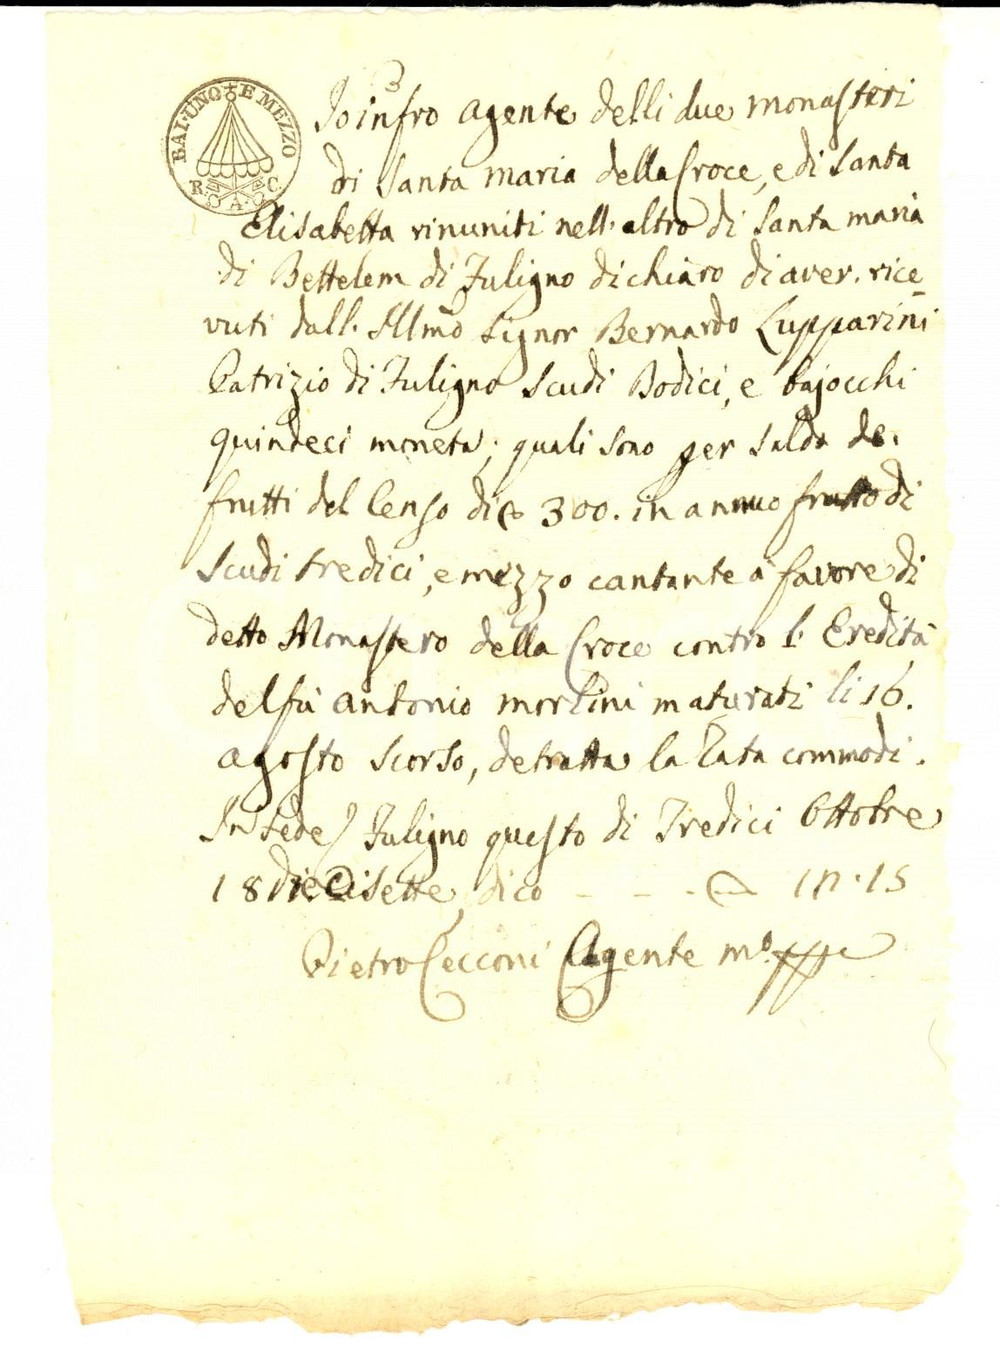 BAI·UNO E MEZZO
R. C. A.
Io infro agente delli due monasteri
di Santa maria della Croce, e di Santa
Elisabetta rinuniti nell. altro di Santa maria
di Bettelem di Fuligno dichiaro di aver. rice
vuti dall. Illmo Signor Bernardo Lupparini
Patrizio di Fuligno Scudi Dodici, e bajocchi
quindeci moneta; quali sono per saldo de.
frutti del Censo di 300. in annuo frutto di
Scudi tredici, e mezzo cantante a favore di
detto Monastero della Croce contro l. Eredità
del fu antonio morlini maturati li 16.
agosto scorso, detratta la Tata commodi.
In fede Fuligno questo di Tredici Ottobre
18 diecisette dico - - - 12.15
Pietro Cecconi Agente mo. ppa